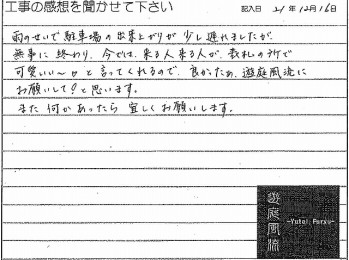 工事の感想を聞かせて下さい 記入日 21年12月16日
雨のせいで駐車場の出来上がりが少し遅れましたが、
無事に終わり、今では、来る人来る人が、表札の所で
可愛いい〜ロと言ってくれるので、良かったぁ、遊庭風流に
お願いして?と思います。
また何かあったら宜しくお願いします。
遊庭風流
-Yutei Furyu-